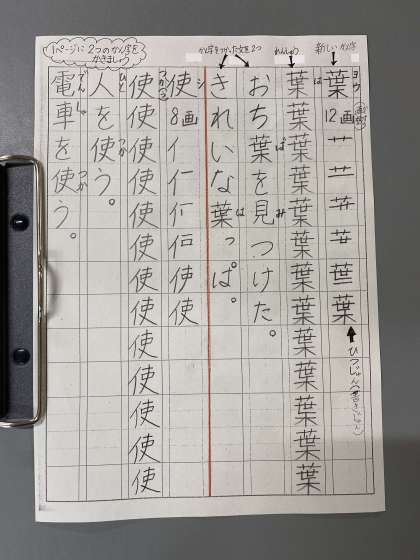 1ページに2つのかん字を
かきましょう
新しいかん字
れんしゅう
かん字をつかった文を2つ
ヨウ
葉
12画
(画数)
艹
葉
ひつじゅん(書きじゅん)
は
葉葉葉葉葉葉葉葉葉葉葉葉
おち葉を見つけた。
ば
み
きれいな葉っぱ。
は
シ
使
8画
亻
使
つか(う)
使使使使使使使使使使使使
人を使う。
ひと
つか
電車を使う。
でん
しゃ
つか